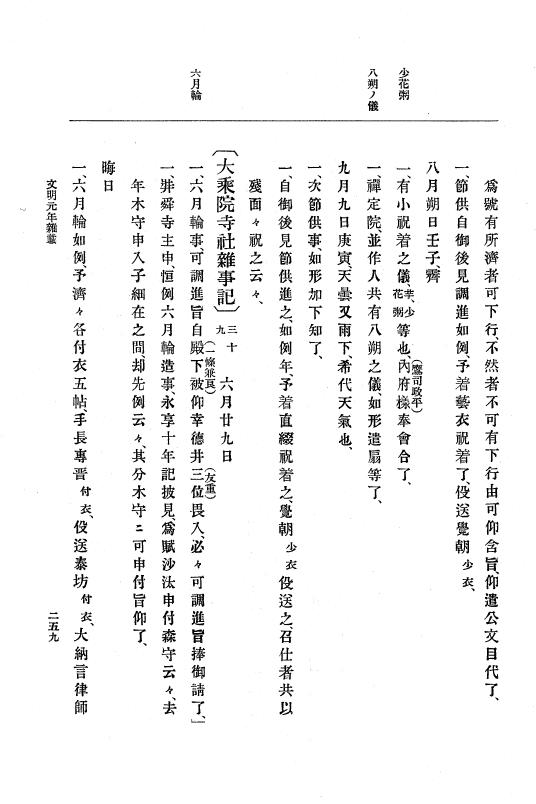 少花粥
八朔ノ儀
六月輪
爲號有所濟者可下行、不然者不可有下行由可仰含旨、仰遣公文目代了、
一、節供自御後見調進如例、予着藝衣祝着了、役送覺朝少衣、
八月朔日壬子、霽
一、有小祝着之儀、孝、少花粥等也、內府樣(鷹司政平)奉會合了、
一、禪定院、並作人共有八朔之儀、如形遣扇等了、
九月九日庚寅、天曇又雨下、希代天氣也、
一、次節供事、如形加下知了、
一、自御後見節供進之、如例年、予着直綴祝着之、覺朝少衣役送之、召仕者共以
殘面々祝之云々、
〔大乘院寺社雜事記〕三十九　六月廿九日
一、六月輪事、可調進旨自殿下(一條兼良)被仰幸德井三位(友重)畏入、必々可調進旨捧御請了、」
一、舜寺主申、恒例六月輪造事、永享十年記披見、爲賦沙汰申付森守云々、去
年木守申入子細在之間、却先例云々、其分木守ニ可申付旨仰了、
晦日
一、六月輪如例予濟々各付衣五帖、手長專晋付衣、役送泰坊付衣、大納言律師
文明元年雜載
二五九